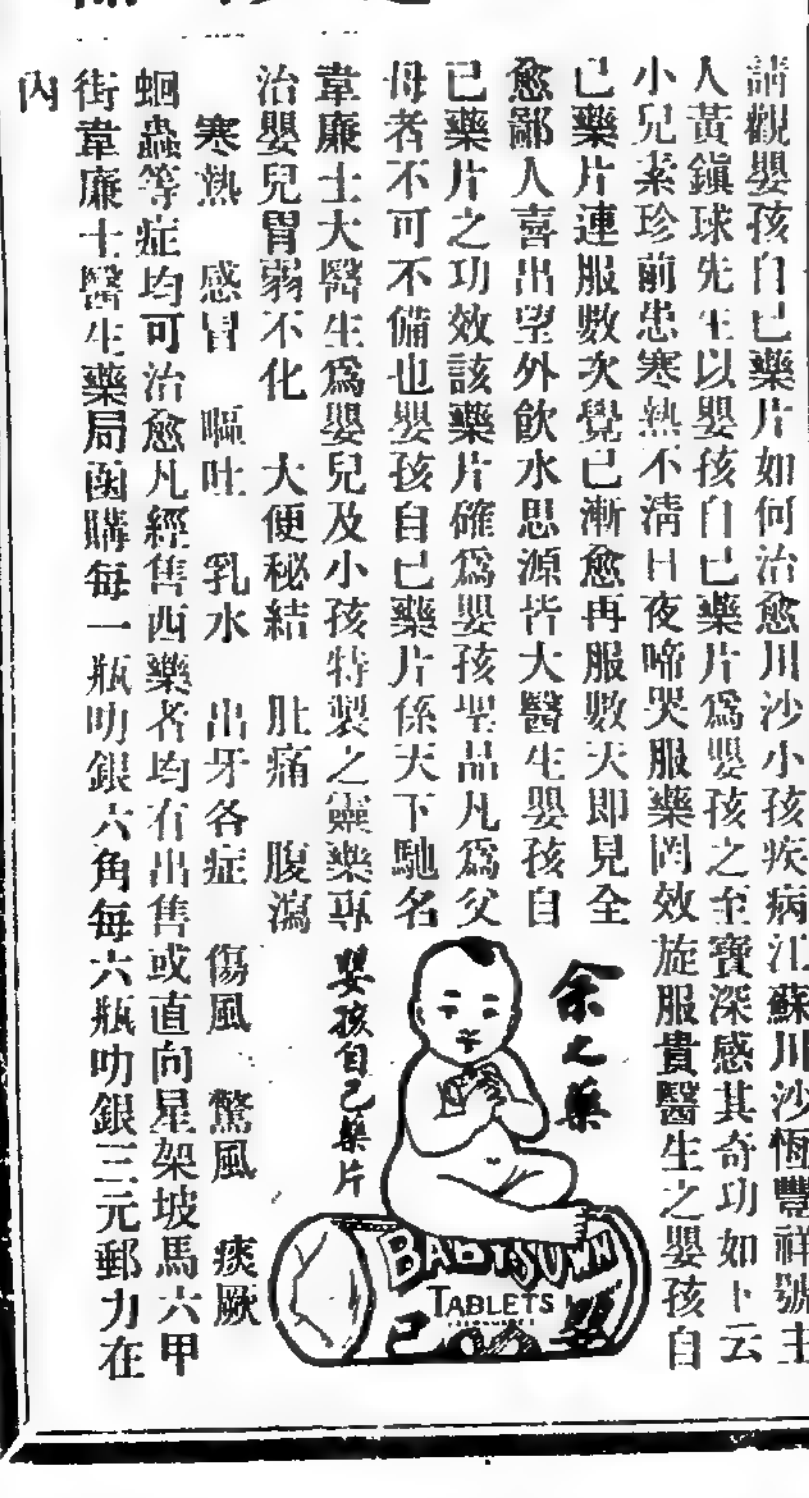 請觀嬰孩自己藥片如何治愈川沙小孩疾病江蘇川沙恆豐祥號主
人黃鎭球先生以嬰孩自己藥片爲嬰孩之至寶深感其奇功如卜云
小兒素珍前患寒熱不清日夜啼哭服藥罔效旋服貴醫生之嬰孩自
己藥片連服數次覺已漸愈再服數天即見全
愈鄙人喜出望外飲水思源皆大醫生嬰孩自
已藥片之功效該藥片確爲嬰孩聖品凡爲父
母者不可不備也嬰孩自已藥片係天下馳名
韋廉士大醫生爲嬰兒及小孩特製之靈藥專
治嬰兒胃弱不化 大便秘結 肚痛 腹瀉
寒熱 感冒 嘔吐 乳水 出牙各症 傷風 驚風 痰厥
蛔蟲等症均可治愈凡經售西藥者均有出售或直向星架坡馬六甲
街韋廉士醫生藥局函購每一瓶叻銀六角每六瓶叻銀三元郵力在
內
余之藥
嬰孩自己藥片
BABY'S OWN
TABLETS
己 嬰